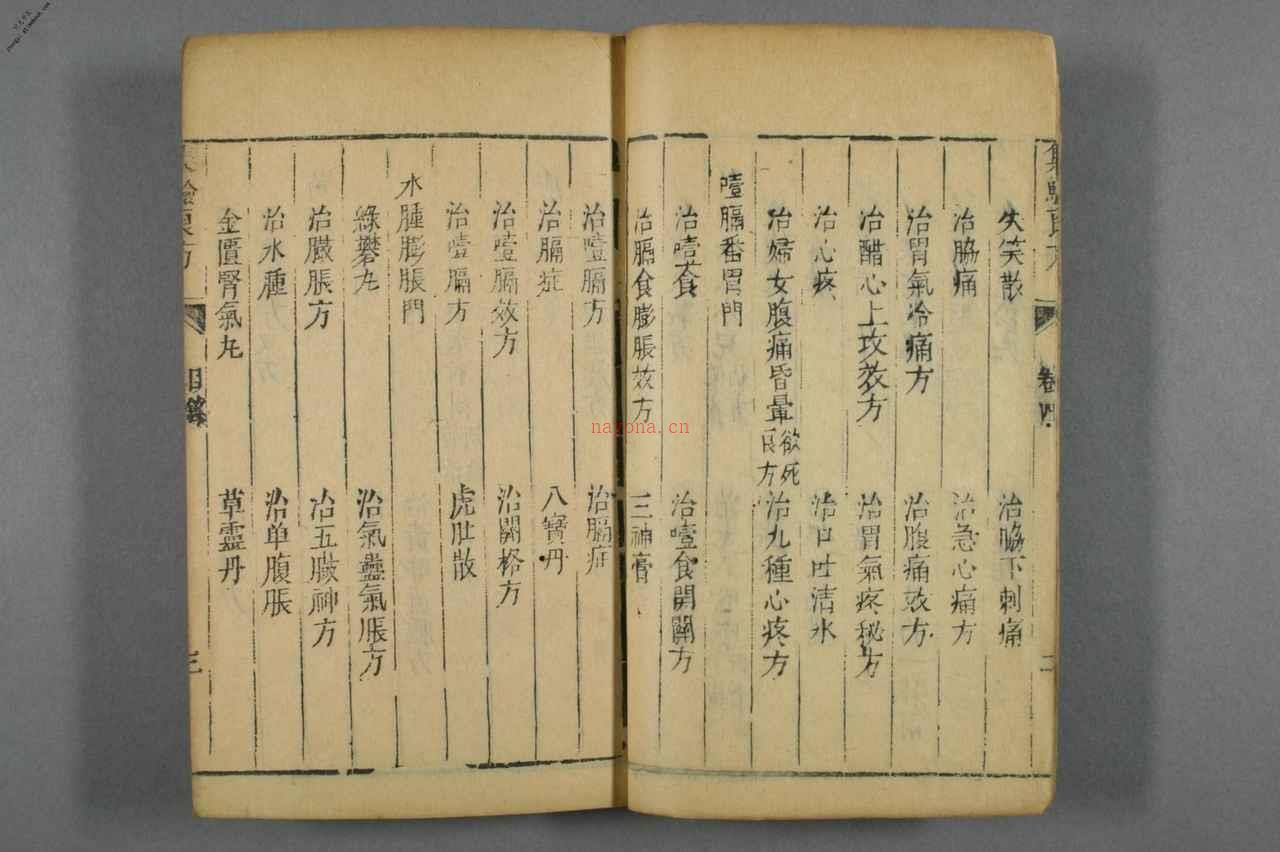 集驗良方
卷四
二
失笑散
治脇下刺痛
治脇痛
治急心痛方
治胃氣冷痛方
治腹痛效方
治醋心上攻效方
治胃氣疼秘方
治心疼
治口吐清水
治婦女腹痛昏暈欲死良方
治九種心疼方
噎膈番胃門
治噎食
治噎食開關方
治膈食膨脹效方
三神膏
治噎膈方
治膈症
治膈症
八寶丹
治噎膈效方
治開格方
治噎膈方
虎肚散
水腫膨脹門
綠礬丸
治氣蠱氣脹方
治臟脹方
治五臟神方
治水腫
治单腹脹
金匱腎氣丸
草靈丹
集驗良方
目錄
三
nayona.cn